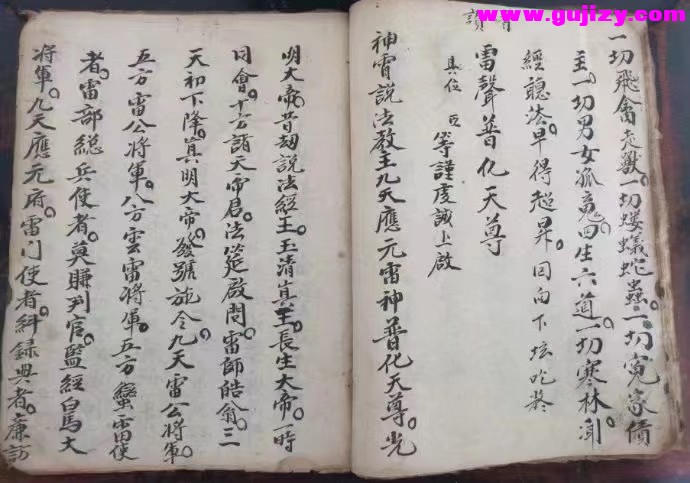 www.gujizy.com
一切飛禽走獸。一切螻蟻蛇蟲。一切寃家債
主。一切男女孤䰟。四生六道。一切寒林
經聽法。早得超昇。回向下坛
讚
雷聲普化天尊
具位 臣 等謹虔誠上啟
神霄說法教主九天應元雷神普化天尊。光
明大帝。昔劫說法經王。玉清真王。長生大帝。一時
同會。十方諸天帝君。法筵啟問。雷師皓翁。三
天初下降。真明大帝。發號施令九天雷公將軍。
五方雷公將軍。八方雲雷將軍。五方蠻雷使
者。雷部総兵使者。莫賺判官。監經白馬大
將軍。九天應元府。雷门使者。糾録典者。廉訪